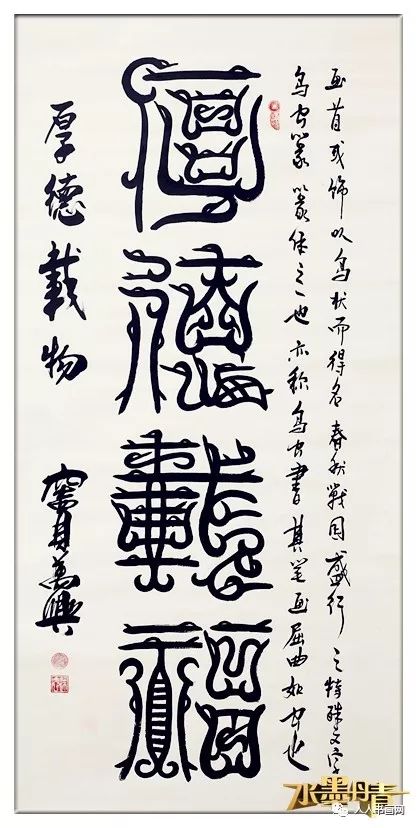 画首或飾以鳥状而得名春秋戰国盛行之特殊文字
鳥虫篆篆体之一也亦称鳥虫書其笔画屈曲如虫也
厚德載
厚德載物
水墨丹青
人人书画网